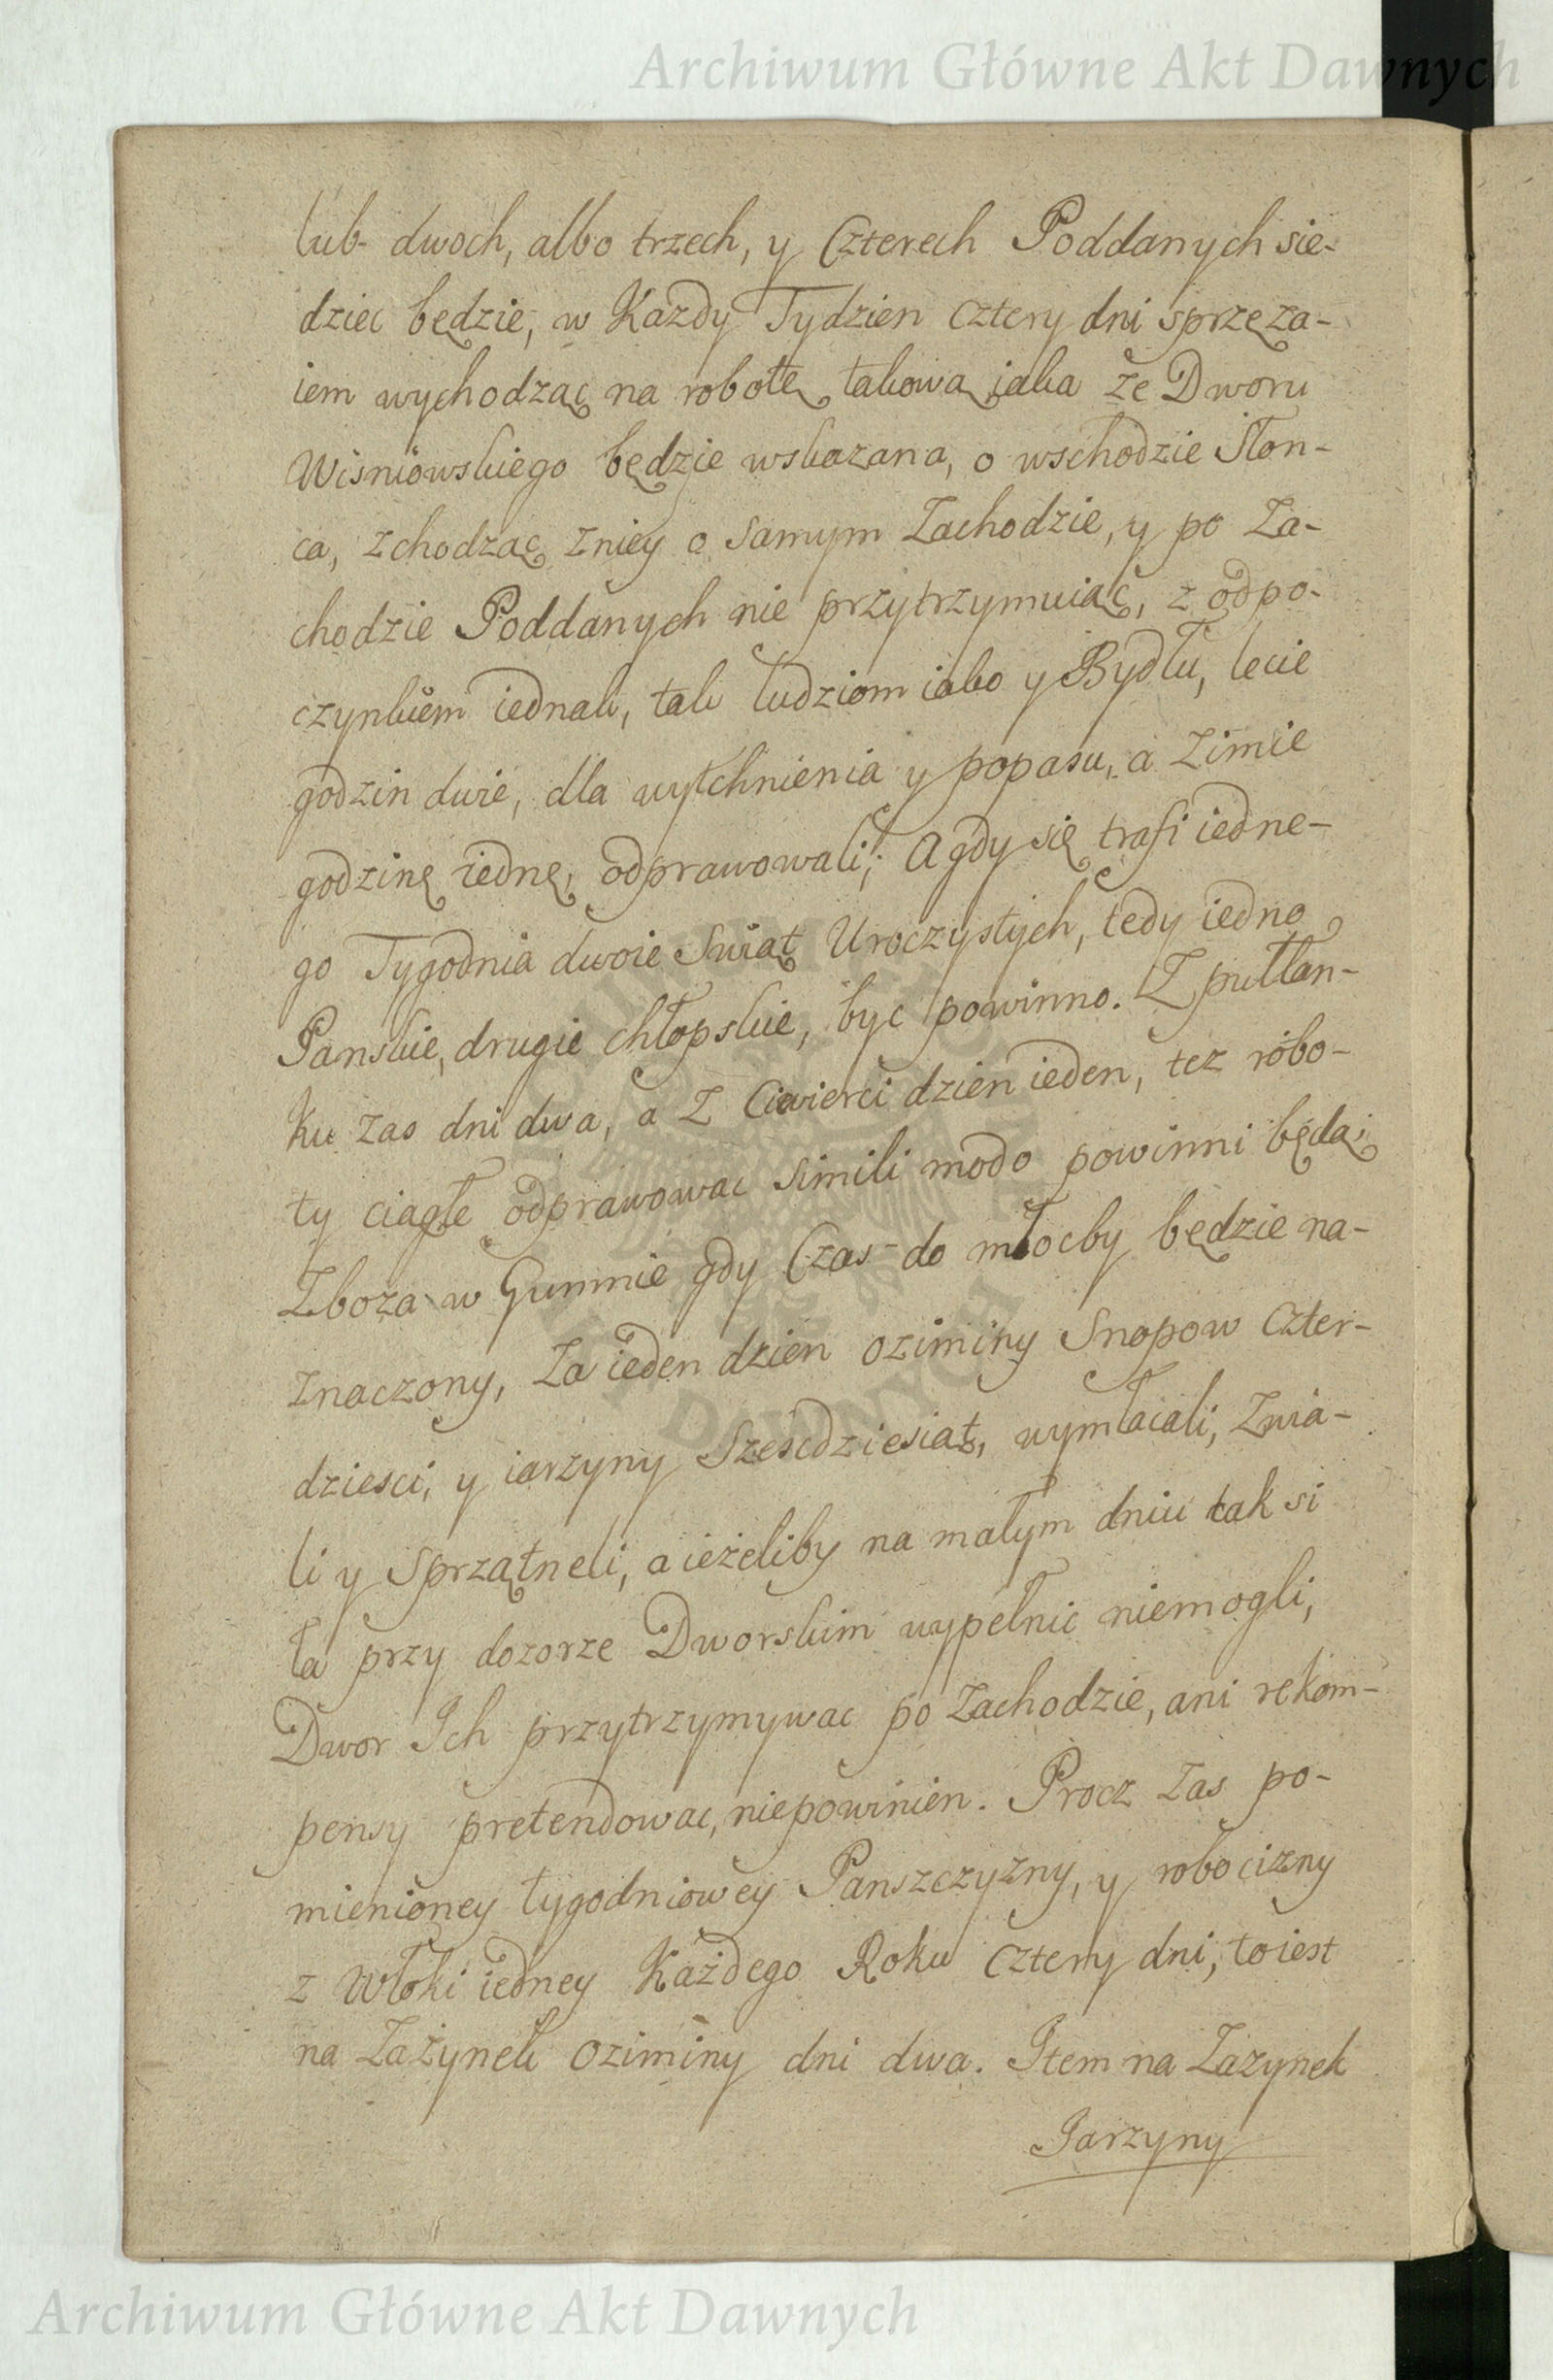 Archiwum Główne Akt Dawnych
lub dwoch, albo trzech, y Czterech Poddanych sie-
dziec będzie, w Kazdy Tydzien cztery dni sprzęza-
iem wychodząc na robotę takową iaka ze Dworu
Wisniowskiego będzie wskazana, o wschodzie Słon-
ca, zchodząc zniey o samym Zachodzie, y po Za-
chodzie Poddanych nie przytrzymuiąc, z odpo-
czynkiem iednak, tak ludziom iako y Bydłu, lecie
godzin dwie, dla wytchnienia y popasu, a Zimie
godzinę iednę, odprawowali; A gdy się trafi iedne-
go Tygodnia dwoie Swiąt Uroczystych, tedy iedno
Panskie, drugie chłopskie, byc powinno. Z pułłan-
ku zas dni dwa, a z Cwierci dzien ieden, tez robo-
ty ciągłe odprawowac simili modo powinni będą;
Zboza w Gumnie gdy Czas do młocby będzie na-
znaczony, za ieden dzien oziminy Snopow Czter-
dziesci, y iarzyny Szescdziesiąt, wymłacali, Zwia-
li y Sprzątneli, a ieżeliby na małym dniu tak si
ła przy dozorze Dworskim wypełnic niemogli,
Dwor Ich przytrzymywac po Zachodzie, ani rekom-
pensy pretendowac, niepowinien. Procz zas po-
mienioney tygodniowey Panszczyzny, y robocizny
z Włoki iedney Każdego Roku cztery dni, toiest
na Zażynek Oziminy dni dwa. Item na Zazynek
Jarzyny
Archiwum Główne Akt Dawnych